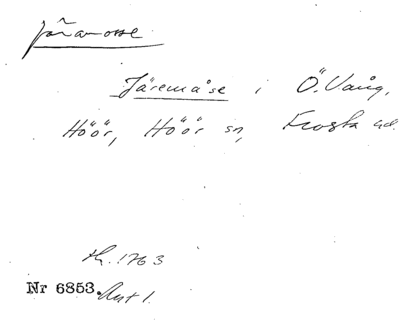 Järemåse i Ö. Vång,
Höör, Höör sn, Frosta hd.
1763
Nr 6853. Akt 1.